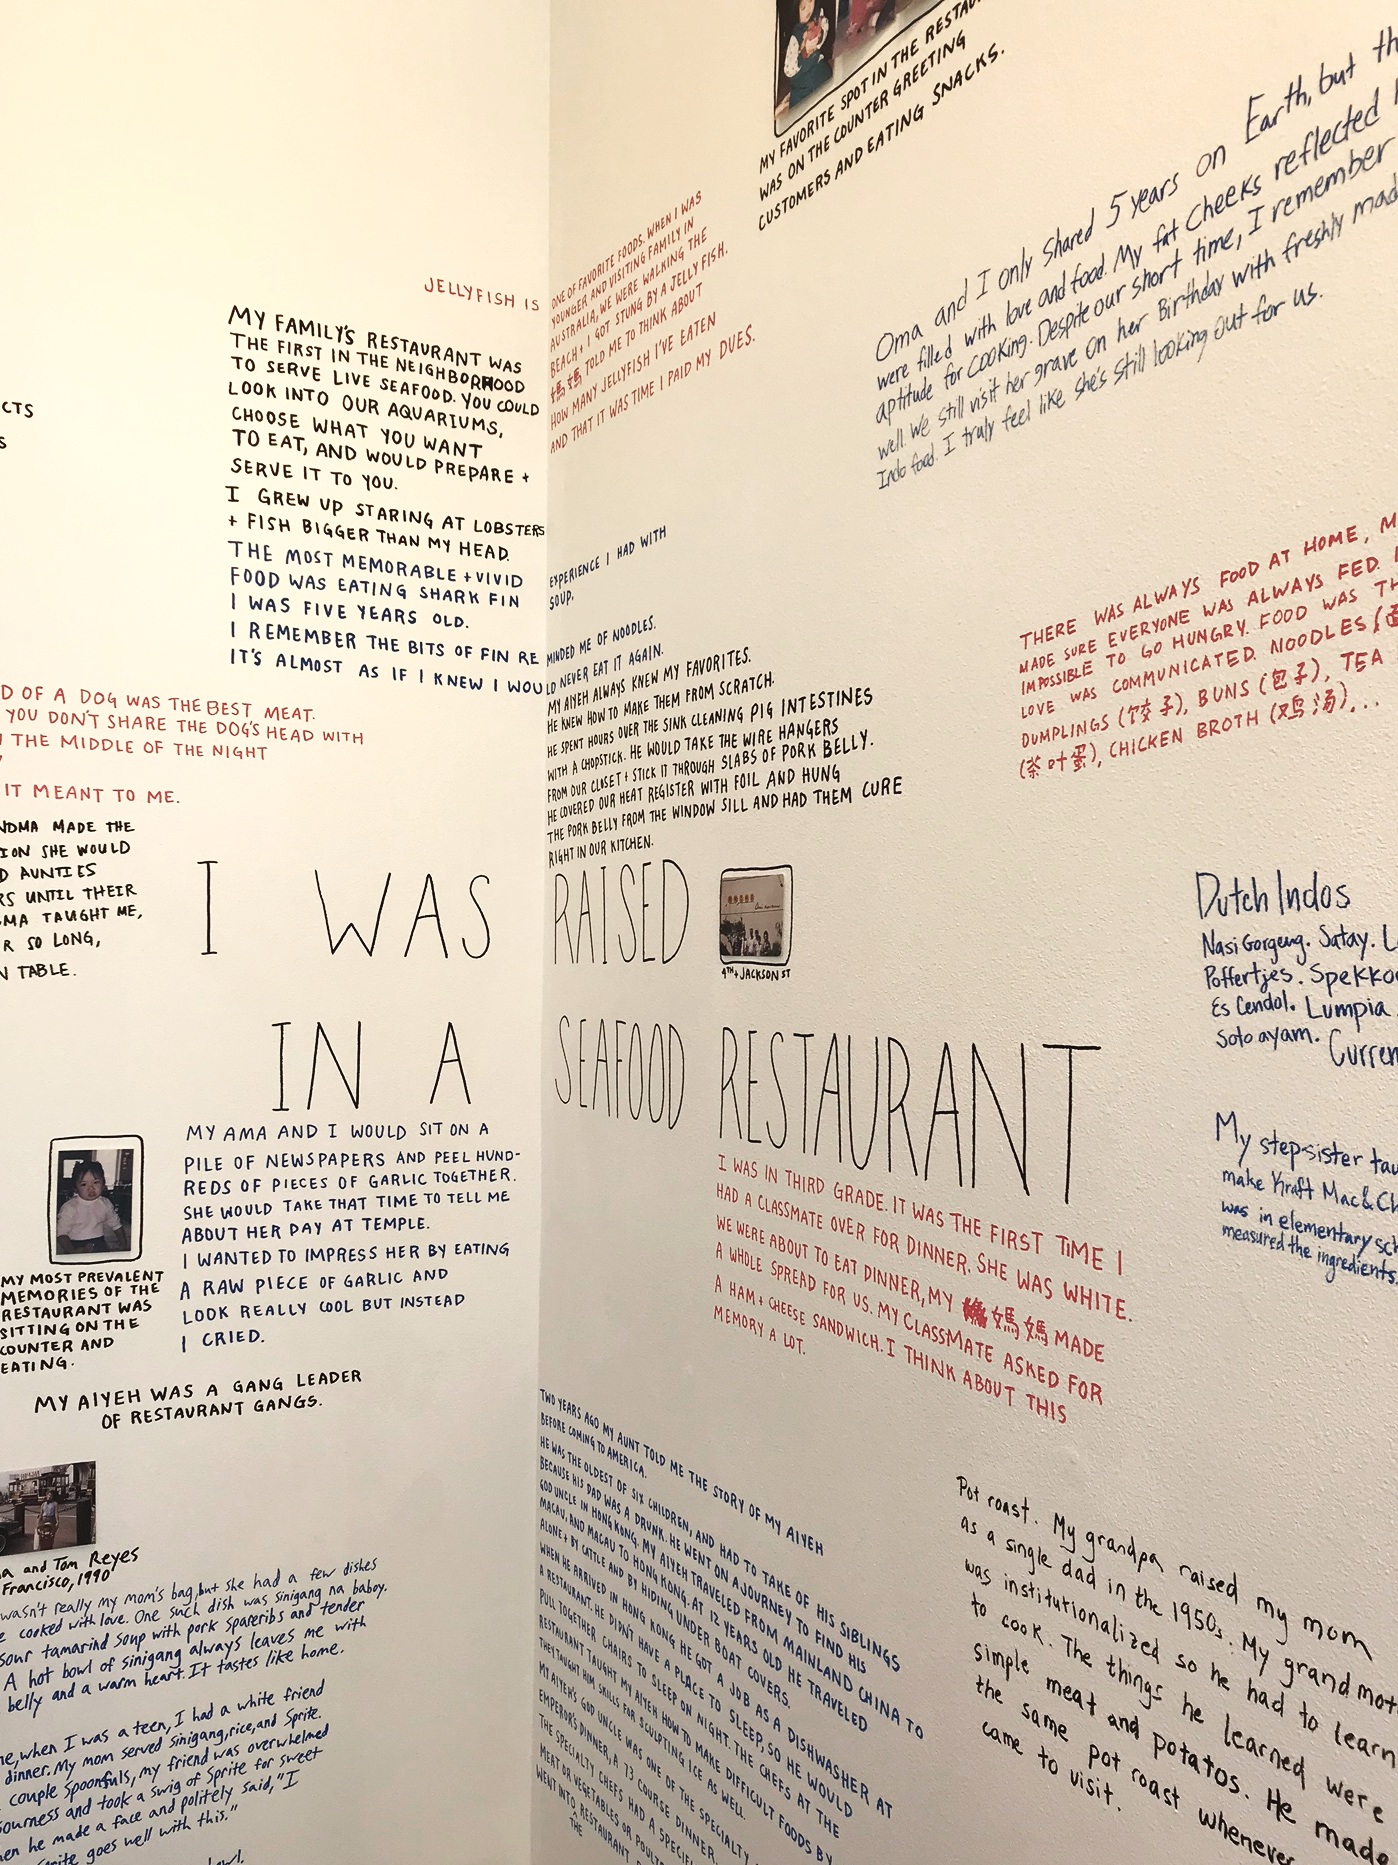 MY FAVORITE SPOT IN THE
WAS ON THE COUNTER GREETING
CUSTOMERS AND EATING SNACKS.
Oma and I only shared 5 years on Earth, but
were filled with love and food. My fat cheeks reflected
aptitude for cooking. Despite our short time, I remember
well. We still visit her grave on her Birthday with freshly
Indo food. I truly feel like she's still looking out for us.
JELLYFISH IS ONE OF FAVORITE FOODS. WHEN I WAS
YOUNGER AND VISITING FAMILY IN
AUSTRALIA, WE WERE WALKING THE
BEACH + I GOT STUNG BY A JELLY FISH.
媽媽 TOLD ME TO THINK ABOUT
HOW MANY JELLYFISH I'VE EATEN
AND THAT IT WAS TIME I PAID MY DUES.
MY FAMILY'S RESTAURANT WAS
THE FIRST IN THE NEIGHBORHOOD
TO SERVE LIVE SEAFOOD. YOU COULD
LOOK INTO OUR AQUARIUMS,
CHOOSE WHAT YOU WANT
TO EAT, AND WOULD PREPARE +
SERVE IT TO YOU.
I GREW UP STARING AT LOBSTERS
+ FISH BIGGER THAN MY HEAD.
THE MOST MEMORABLE + VIVID EXPERIENCE I HAD WITH
FOOD WAS EATING SHARK FIN SOUP.
I WAS FIVE YEARS OLD.
I REMEMBER THE BITS OF FIN REMINDED ME OF NOODLES.
IT'S ALMOST AS IF I KNEW I WOULD NEVER EAT IT AGAIN.
MY AIYEH ALWAYS KNEW MY FAVORITES.
HE KNEW HOW TO MAKE THEM FROM SCRATCH.
HE SPENT HOURS OVER THE SINK CLEANING PIG INTESTINES
WITH A CHOPSTICK. HE WOULD TAKE THE WIRE HANGERS
FROM OUR CLOSET + STICK IT THROUGH SLABS OF PORK BELLY.
HE COVERED OUR HEAT REGISTER WITH FOIL AND HUNG
THE PORK BELLY FROM THE WINDOW SILL AND HAD THEM CURE
RIGHT IN OUR KITCHEN.
THERE WAS ALWAYS FOOD AT HOME,
MADE SURE EVERYONE WAS ALWAYS FED.
IMPOSSIBLE TO GO HUNGRY. FOOD WAS
LOVE WAS COMMUNICATED. NOODLES
DUMPLINGS (饺子), BUNS (包子), TEA
(茶叶蛋), CHICKEN BROTH (鸡汤),...
D OF A DOG WAS THE BEST MEAT.
YOU DON'T SHARE THE DOG'S HEAD WITH
THE MIDDLE OF THE NIGHT
IT MEANT TO ME.
MADE THE
SHE WOULD
AUNTIES
UNTIL THEIR
TAUGHT ME,
SO LONG,
TABLE.
I WAS RAISED
4TH + JACKSON ST
IN A SEAFOOD RESTAURANT
Dutch Indos
Nasi Gorgeng. Satay.
Poffertjes.
Es Cendol. Lumpia
Soto ayam.
My stepsister
make Kraft Mac &
was in elementary
measured the ingredients
MY AMA AND I WOULD SIT ON A
PILE OF NEWSPAPERS AND PEEL HUND-
REDS OF PIECES OF GARLIC TOGETHER.
SHE WOULD TAKE THAT TIME TO TELL ME
ABOUT HER DAY AT TEMPLE.
I WANTED TO IMPRESS HER BY EATING
A RAW PIECE OF GARLIC AND
LOOK REALLY COOL BUT INSTEAD
I CRIED.
MY MOST PREVALENT
MEMORIES OF THE
RESTAURANT WAS
SITTING ON THE
COUNTER AND
EATING.
MY AIYEH WAS A GANG LEADER
OF RESTAURANT GANGS.
I WAS IN THIRD GRADE. IT WAS THE FIRST TIME I
HAD A CLASSMATE OVER FOR DINNER. SHE WAS WHITE.
WE WERE ABOUT TO EAT DINNER, MY 媽媽 MADE
A WHOLE SPREAD FOR US. MY CLASSMATE ASKED FOR
A HAM + CHEESE SANDWICH. I THINK ABOUT THIS
MEMORY A LOT.
and Tom Reyes
Francisco, 1990
wasn't really my mom's bag, but she had a few dishes
cooked with love. One such dish was sinigang na baboy.
sour tamarind soup with pork spareribs and tender
A hot bowl of sinigang always leaves me with
belly and a warm heart. It tastes like home.
when I was a teen, I had a white friend
dinner. My mom served sinigang, rice, and Sprite.
couple spoonfuls, my friend was overwhelmed
sourness and took a swig of Sprite for sweet
he made a face and politely said, "I
goes well with this."
bowl.
TWO YEARS AGO MY AUNT TOLD ME THE STORY OF MY AIYEH
BEFORE COMING TO AMERICA.
HE WAS THE OLDEST OF SIX CHILDREN, AND HAD TO TAKE OF HIS SIBLINGS
BECAUSE HIS DAD WAS A DRUNK. HE WENT ON A JOURNEY TO FIND HIS
GOD UNCLE IN HONG KONG. MY AIYEH TRAVELED FROM MAINLAND CHINA TO
MACAU, AND MACAU TO HONG KONG. AT 12 YEARS OLD HE TRAVELED
ALONE + BY CATTLE AND BY HIDING UNDER BOAT COVERS.
WHEN HE ARRIVED IN HONG KONG HE GOT A JOB AS A DISHWASHER AT
A RESTAURANT. HE DIDN'T HAVE A PLACE TO SLEEP, SO HE WOULD
PULL TOGETHER CHAIRS TO SLEEP ON NIGHT. THE CHEFS AT THE
RESTAURANT TAUGHT MY AIYEH HOW TO MAKE DIFFICULT FOODS BY
THEY TAUGHT HIM SKILLS FOR SCULPTING ICE AS WELL.
MY AIYEH'S GOD UNCLE WAS ONE OF THE SPECIALTY
EMPEROR'S DINNER, A 73 COURSE DINNER.
THE SPECIALTY CHEFS HAD A
MEAT OR VEGETABLES OR
WENT INTO RESTAURANT
THE
Pot roast. My grandpa raised my mom
as a single dad in the 1950s. My
was institutionalized so he had to learn
to cook. The things he learned were
simple meat and potatos. He made
the same pot roast whenever
came to visit.